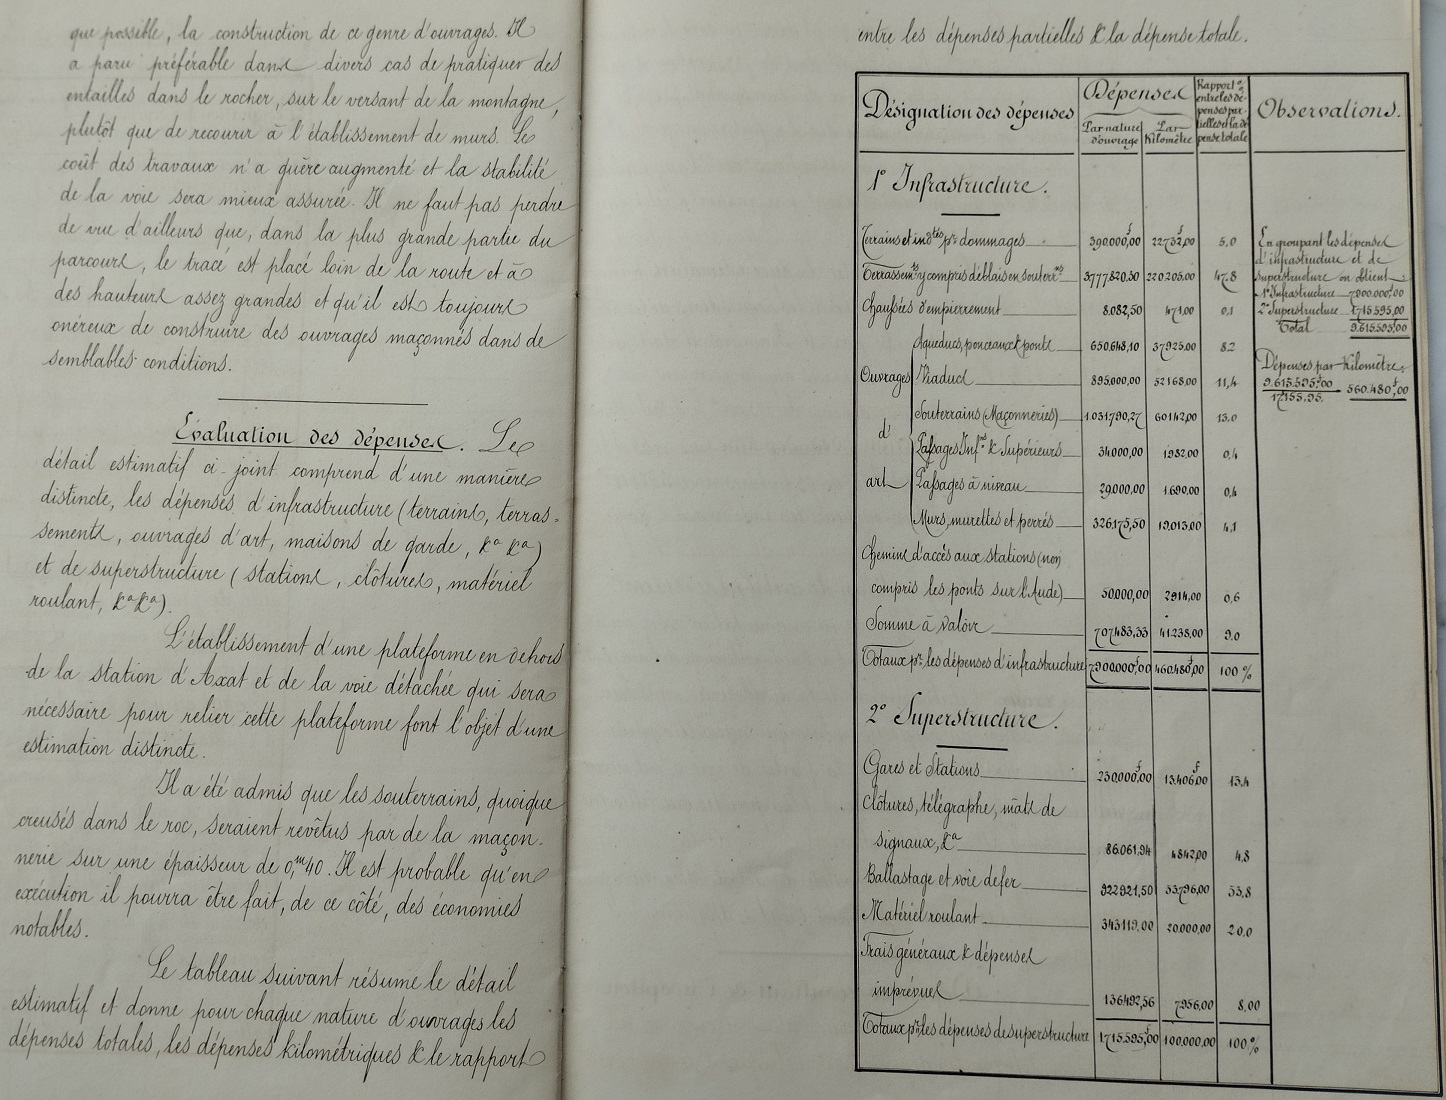 que possible, la construction de ce genre d'ouvrages. Il
a paru préférable dans divers cas de pratiquer des
entailles dans le rocher, sur le versant de la montagne,
plutôt que de recourir à l'établissement de murs. Le
coût des travaux n'a guère augmenté et la stabilité
de la voie sera mieux assurée. Il ne faut pas perdre
de vue d'ailleurs que, dans la plus grande partie du
parcours, le tracé est placé loin de la route et à
des hauteurs assez grandes et qu'il est toujours
onéreux de construire des ouvrages maçonnés dans de
semblables conditions.
Evaluation des dépenses. Le
détail estimatif ci-joint comprend d'une manière
distincte, les dépenses d'infrastructure (terrains, terras-
sements, ouvrages d'art, maisons de garde, &a &a)
et de superstructure (stations, clôtures, matériel
roulant, &a &a).
L'établissement d'une plateforme en dehors
de la station d'Axat et de la voie détachée qui sera
nécessaire pour relier cette plateforme font l'objet d'une
estimation distincte.
Il a été admis que les souterrains, quoique
creusés dans le roc, seraient revêtus par de la maçon-
nerie sur une épaisseur de 0,m40. Il est probable qu'en
exécution il pourra être fait, de ce côté, des économies
notables.
Le tableau suivant résume le détail
estimatif et donne pour chaque nature d'ouvrages les
dépenses totales, les dépenses kilométriques & le rapport
entre les dépenses partielles & la dépense totale.
Désignation des dépenses | Dépenses | Rapports entre les dépenses partielles et la dépense totale | Observations.
Par nature d'ouvrage | Par Kilomètre
1° Infrastructure.
Terrains et indtés pr dommages 390.000,00 22732,00 5,0
Terrassemts y compris déblais en souterrns 3777820,50 220205,00 47,8
Chaussées d'empierrement 8.082,50 471,00 0,1
Ouvrages d'art
Aqueducs, ponceaux & ponts 650,648,10 37925,00 8,2
Viaducs 895,000,00 52168,00 11,4
Souterrains (Maçonneries) 1.031790,27 60142,00 13,0
Passages Infrs & Supérieurs 34000,00 1982,00 0,4
Passages à niveau 29,000,00 1.690,00 0,4
Murs, murettes et perrés 326175,50 19,013,00 4,1
Chemins d'accès aux stations (non
compris les ponts sur l'Aude) 50.000,00 2914,00 0,6
Somme à valoir 707483,33 41.238,00 9,0
Totaux pr les dépenses d'infrastructure 7900000f,00 460.480f,00 100 %
2° Superstructure.
Gares et Stations 230000f,00 13.406f,00 13,4
Clôtures, télégraphe, mâts de
signaux, &a 86.061,94 4842,00 4,8
Ballastage et voie de fer 922921,50 53796,00 53,8
Matériel roulant 343119,00 20.000,00 20,0
Frais généraux & dépenses
imprévues 136492,56 7956,00 8,00
Totaux pr les dépenses de superstructure 1715595f,00 100,000,00 100 %
En groupant les dépenses
d'infrastructure et de
superstructure on obtient:
1° Infrastructure 7900000f,00
2° Superstructure 1715595,00
Total 9.615595f,00
Dépenses par Kilomètre:
9.615.595f,00 560.480f,00
17155,95